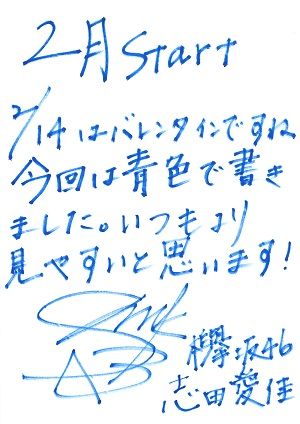 2月 Start
2/14はバレンタインですね
今回は青色で書き
ました。いつもより
見やすいと思います!
欅坂46
志田愛佳